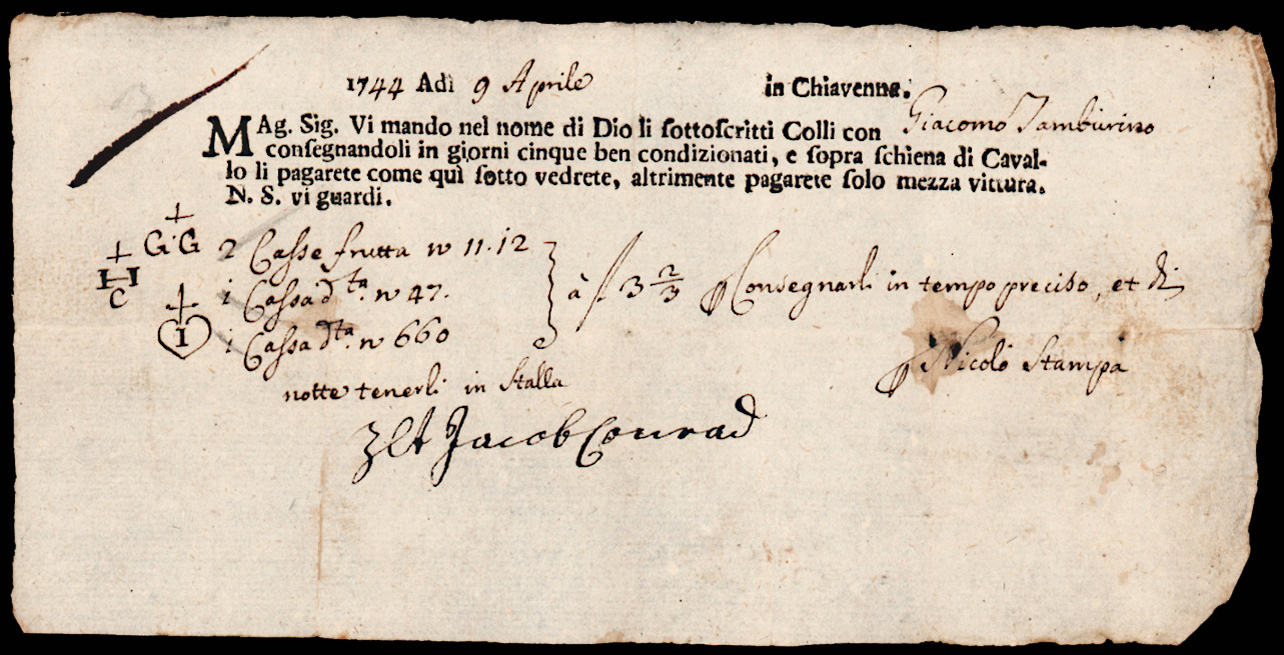 1744 Adì 9 Aprile in Chiavenna.
MAg. Sig. Vi mando nel nome di Dio li sottoscritti Colli con Giacomo Tamburino
consegnandoli in giorni cinque ben condizionati, e sopra schiena di Caval-
lo li pagarete come quì sotto vedrete, altrimente pagarete solo mezza vittura.
N. S. vi guardi.
G·G 2 Casse frutta n 11.12
HI C i Cassa dta. n 47. à f 3 2/3 Consegnarli in tempo preciso, et di
I i Cassa dta. n 660
Nicolò Stampa
notte tenerli in Stalla
Jacob Conrad